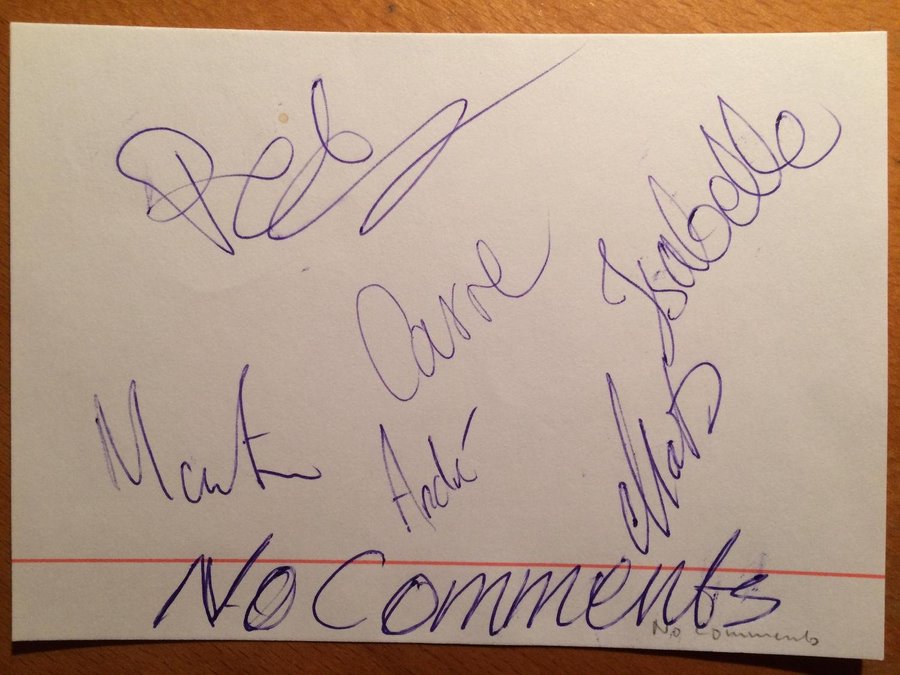 Isabelle
Martin
André
Mats
No Comments
No Comments